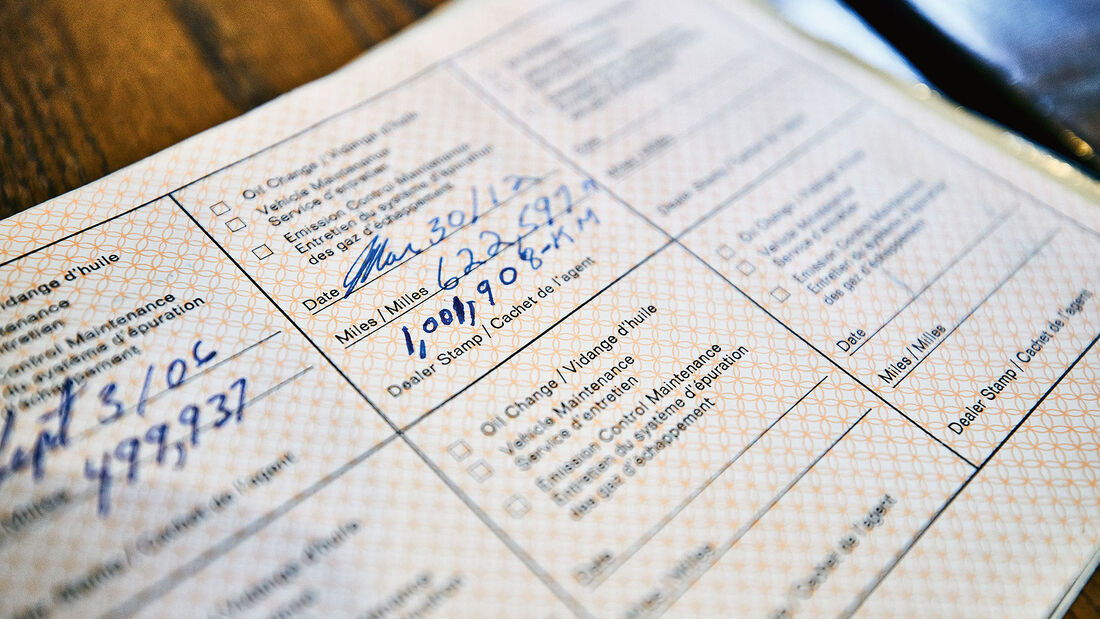 Vidange d'huile
Control Maintenance
système d'épuration
Sept 3/06
499,937
Dealer Stamp / Cachet de l'agent
Vidange d'huile
Oil Change / Vidange d'huile
Vehicle Maintenance
Service d'entretien
Emission Control Maintenance
Entretien du système d'épuration
des gaz d'échappement
Date Mar 30/12
Miles / Milles 622,597
1,001,908-KM
Dealer Stamp / Cachet de l'agent
Oil Change / Vidange d'huile
Vehicle Maintenance
Service d'entretien
Emission Control Maintenance
Entretien du système d'épuration
des gaz d'échappement
Date
Miles / Milles
Cachet de l'agent
Oil Change / Vidange d'huile
Vehicle Maintenance
Service d'entretien
Emission Control Maintenance
Entretien du système d'épuration
des gaz d'échappement
Date
Miles / Milles
Dealer Stamp / Cachet de l'agent